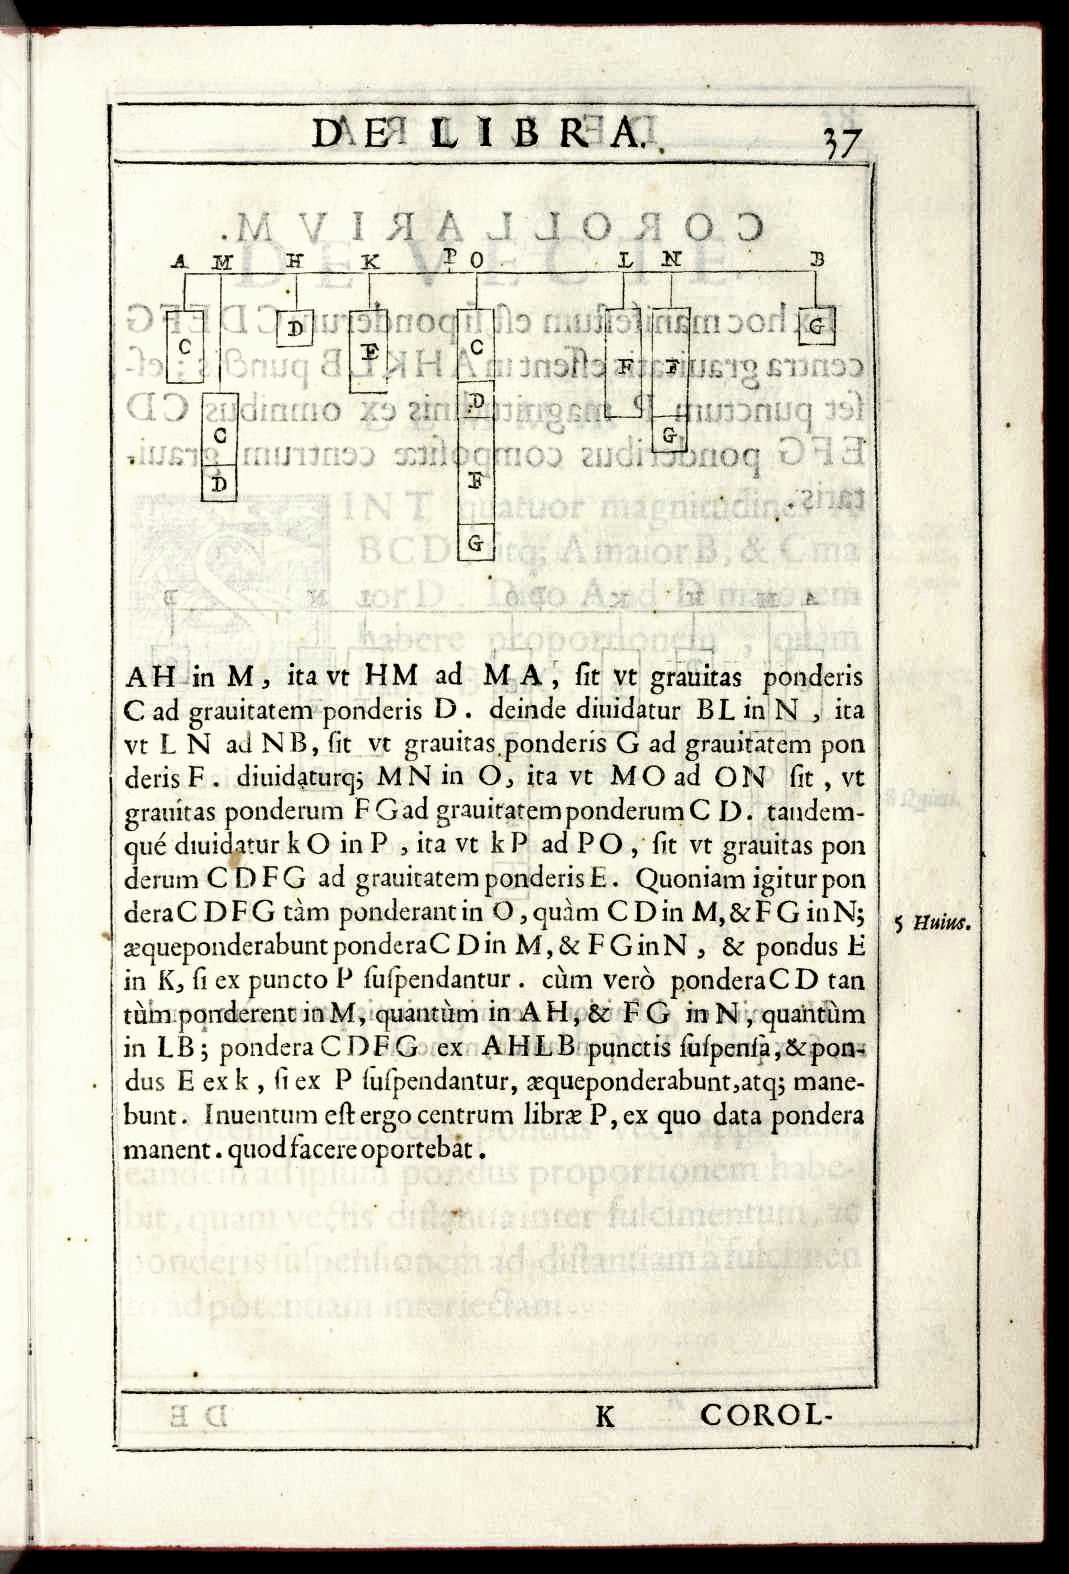 DE LIBRA. 37
A M H K P O L N B
C D E C F F G
C D D G
D F
G
AH in M, ita vt HM ad MA, ſit vt grauitas ponderis
C ad grauitatem ponderis D. deinde diuidatur BL in N, ita
vt LN ad NB, ſit vt grauitas ponderis G ad grauitatem pon
deris F. diuidaturq; MN in O, ita vt MO ad ON ſit, vt
grauitas ponderum FG ad grauitatem ponderum CD. tandem-
qué diuidatur kO in P, ita vt kP ad PO, ſit vt grauitas pon
derum CDFG ad grauitatem ponderis E. Quoniam igitur pon
dera CDFG tàm ponderant in O, quàm CD in M, & FG in N;
æqueponderabunt pondera CD in M, & FG in N, & pondus E
in K, ſi ex puncto P ſuſpendantur. cùm verò pondera CD tan
tùm ponderent in M, quantùm in AH, & FG in N, quantùm
in LB; pondera CDFG ex AHLB punctis ſuſpenſa, & pon-
dus E ex k, ſi ex P ſuſpendantur, æqueponderabunt, atq; mane-
bunt. Inuentum eſt ergo centrum libræ P, ex quo data pondera
manent. quod facere oportebat.
5 Huius.
K COROL-